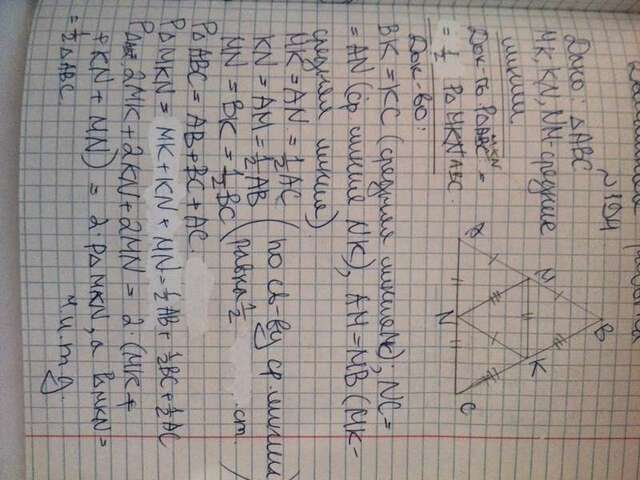 № 104
Дано: △ABC
MK, KN, NM-средние
линии
Док-ть P△MKN =
= 1/2 P△ABC.
Док-во:
BK = KC (средняя линия MK); NC =
= AN (ср линия NK), AM = MB (MK-
средняя линия)
MK = AN = 1/2 AC
KN = AM = 1/2 AB (по св-ву ср. линии
MN = BK = 1/2 BC (равна 1/2 ст. )
P△ABC = AB + BC + AC.
P△MKN = MK + KN + MN = 1/2 AB + 1/2 BC + 1/2 AC
2MK + 2KN + 2MN = 2·(MK +
+ KN + MN) = 2·P△MKN, а P△MKN =
= 1/2 △ABC
ч.и.т.д.
A
M
B
N
K
C